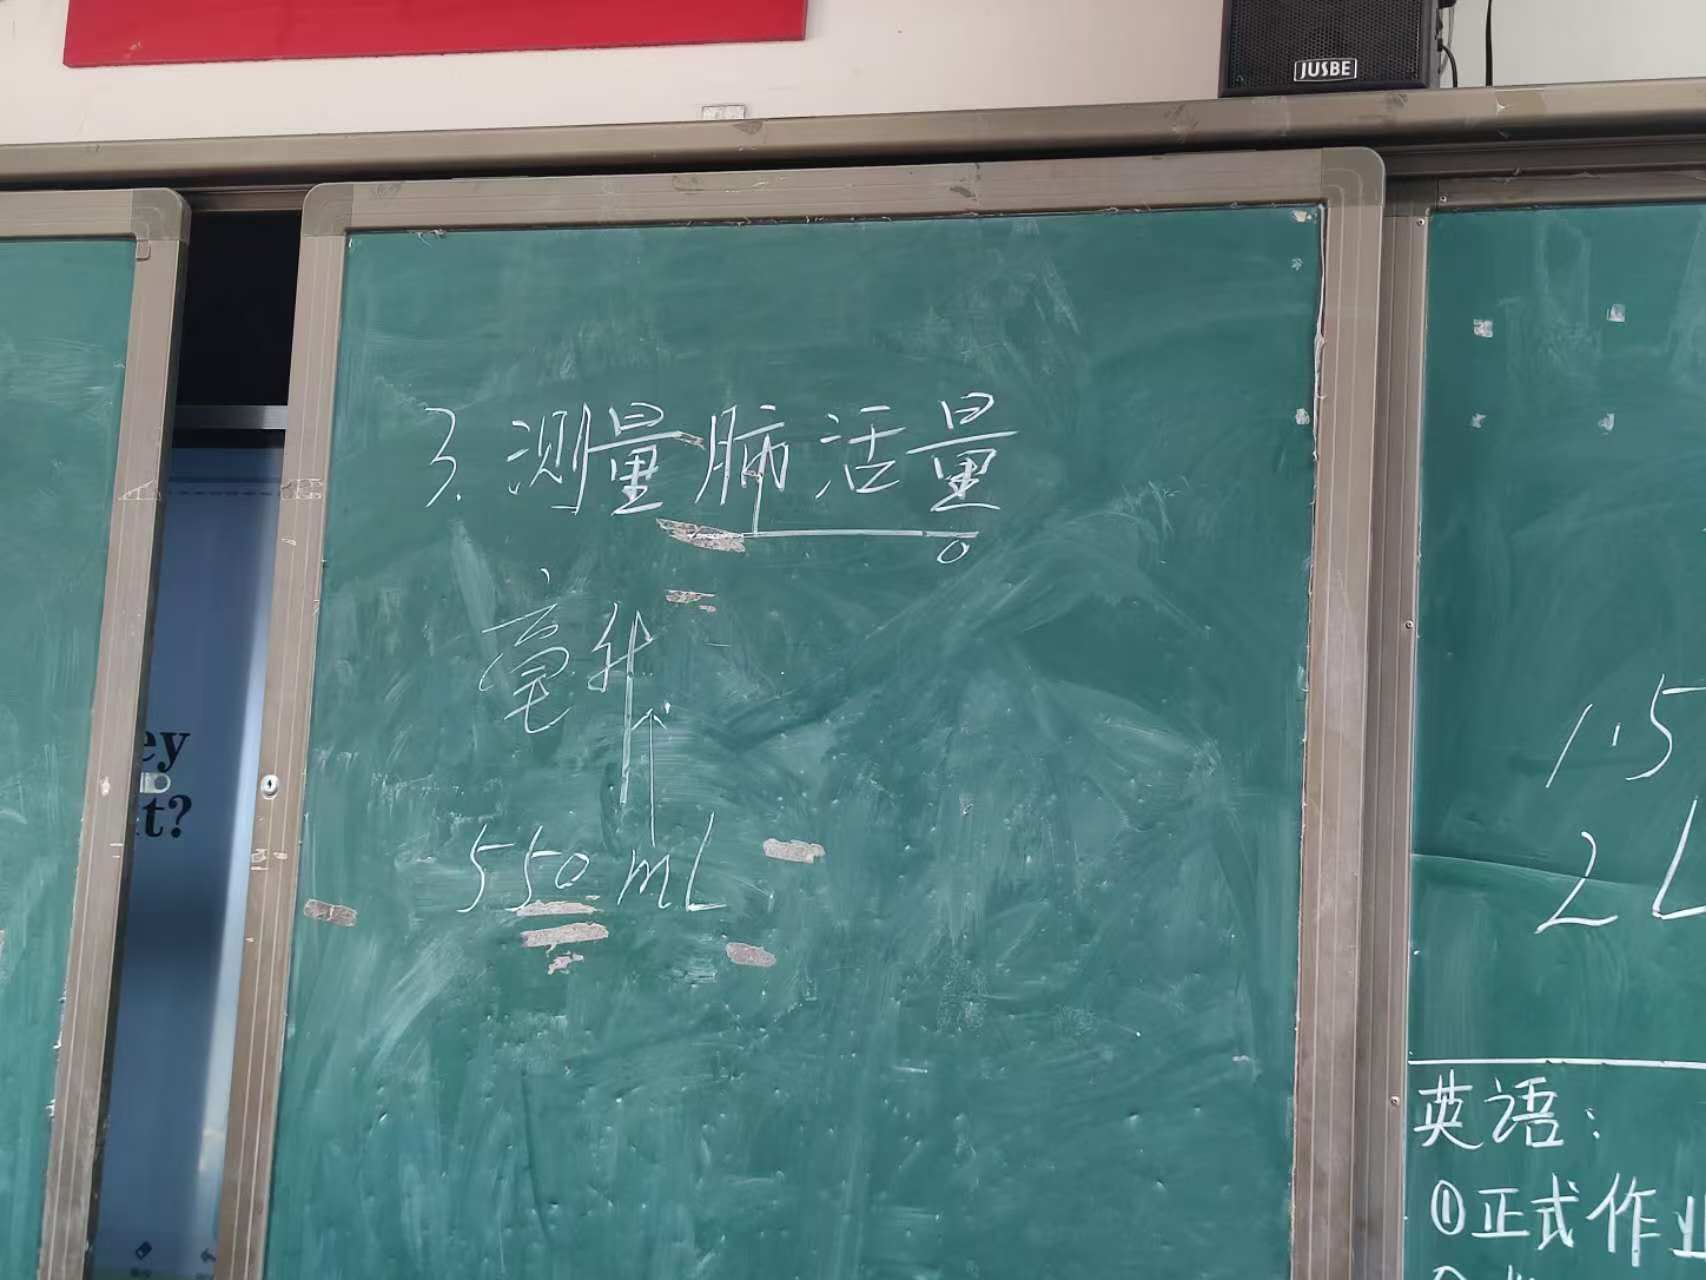 JUSBE
3. 测量肺活量
毫升
550 mL
ey
t?
1.5
2L
英语：
①正式作业